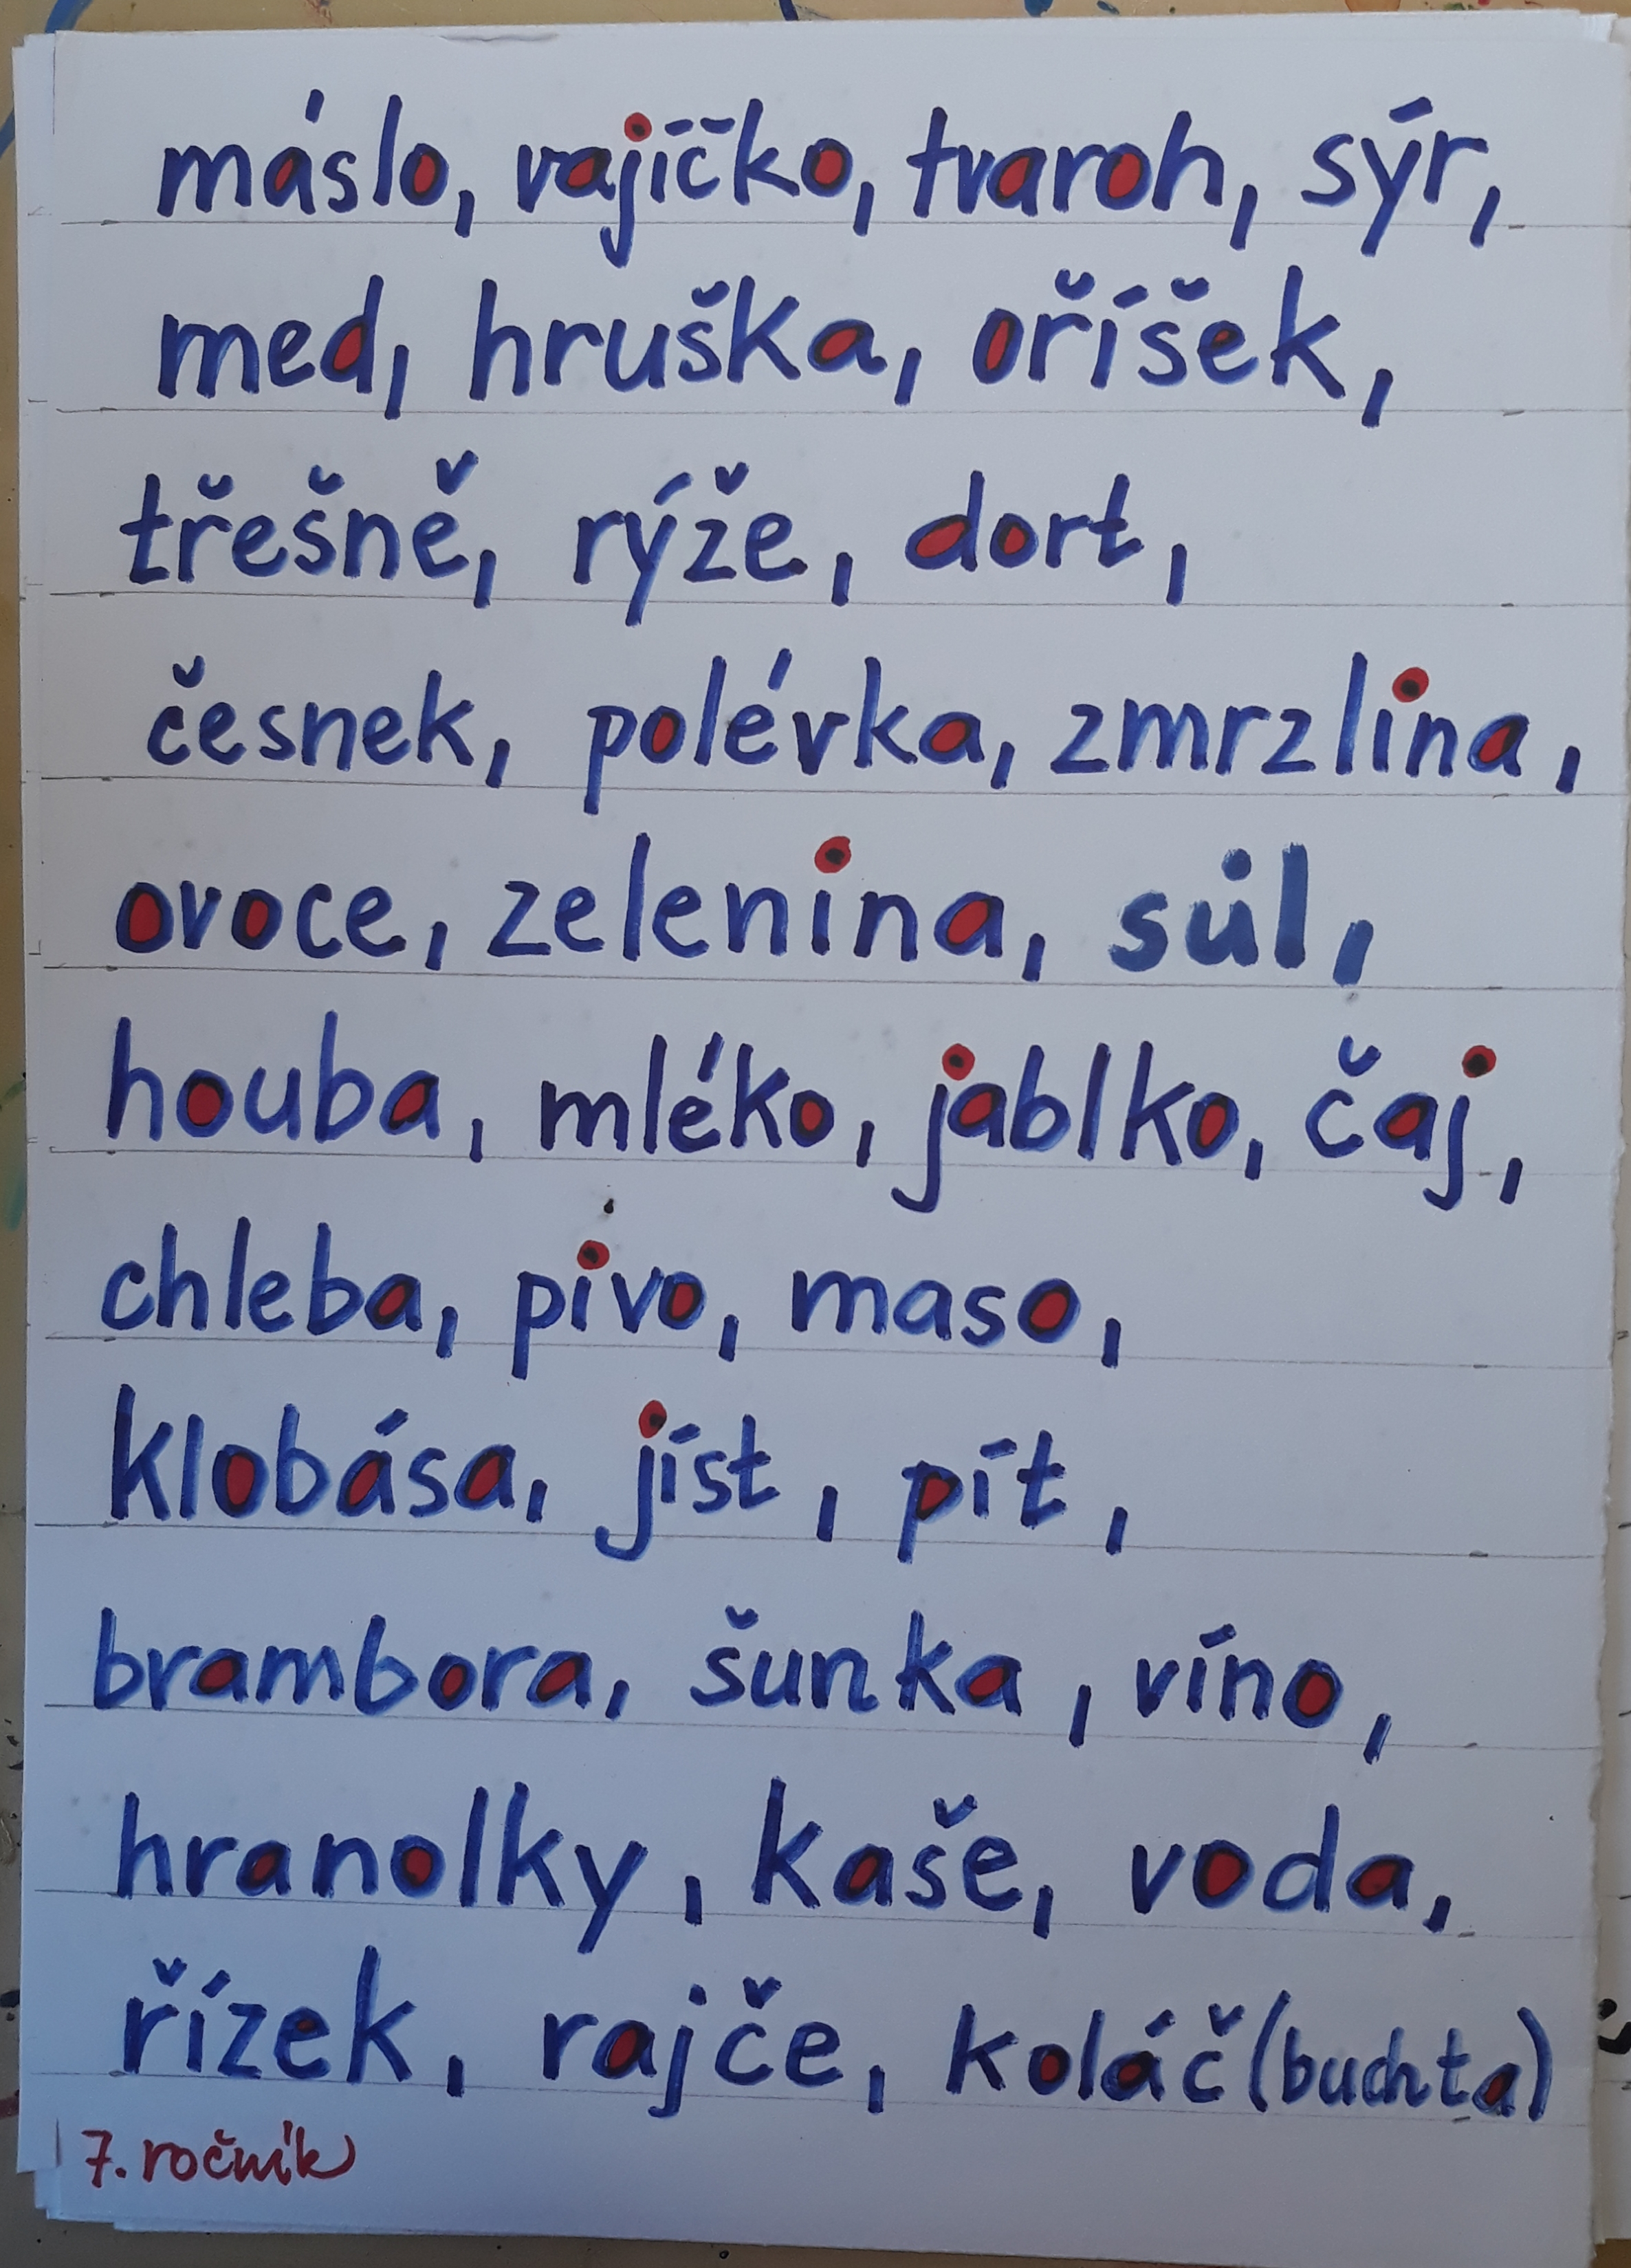 máslo, vajíčko, tvaroh, sýr,
med, hruška, oříšek,
třešně, rýže, dort,
česnek, polévka, zmrzlina,
ovoce, zelenina, sůl,
houba, mléko, jablko, čaj,
chleba, pivo, maso,
klobása, jíst, pít,
brambora, šunka, víno,
hranolky, kaše, voda,
řízek, rajče, koláč (buchta)
7. ročník